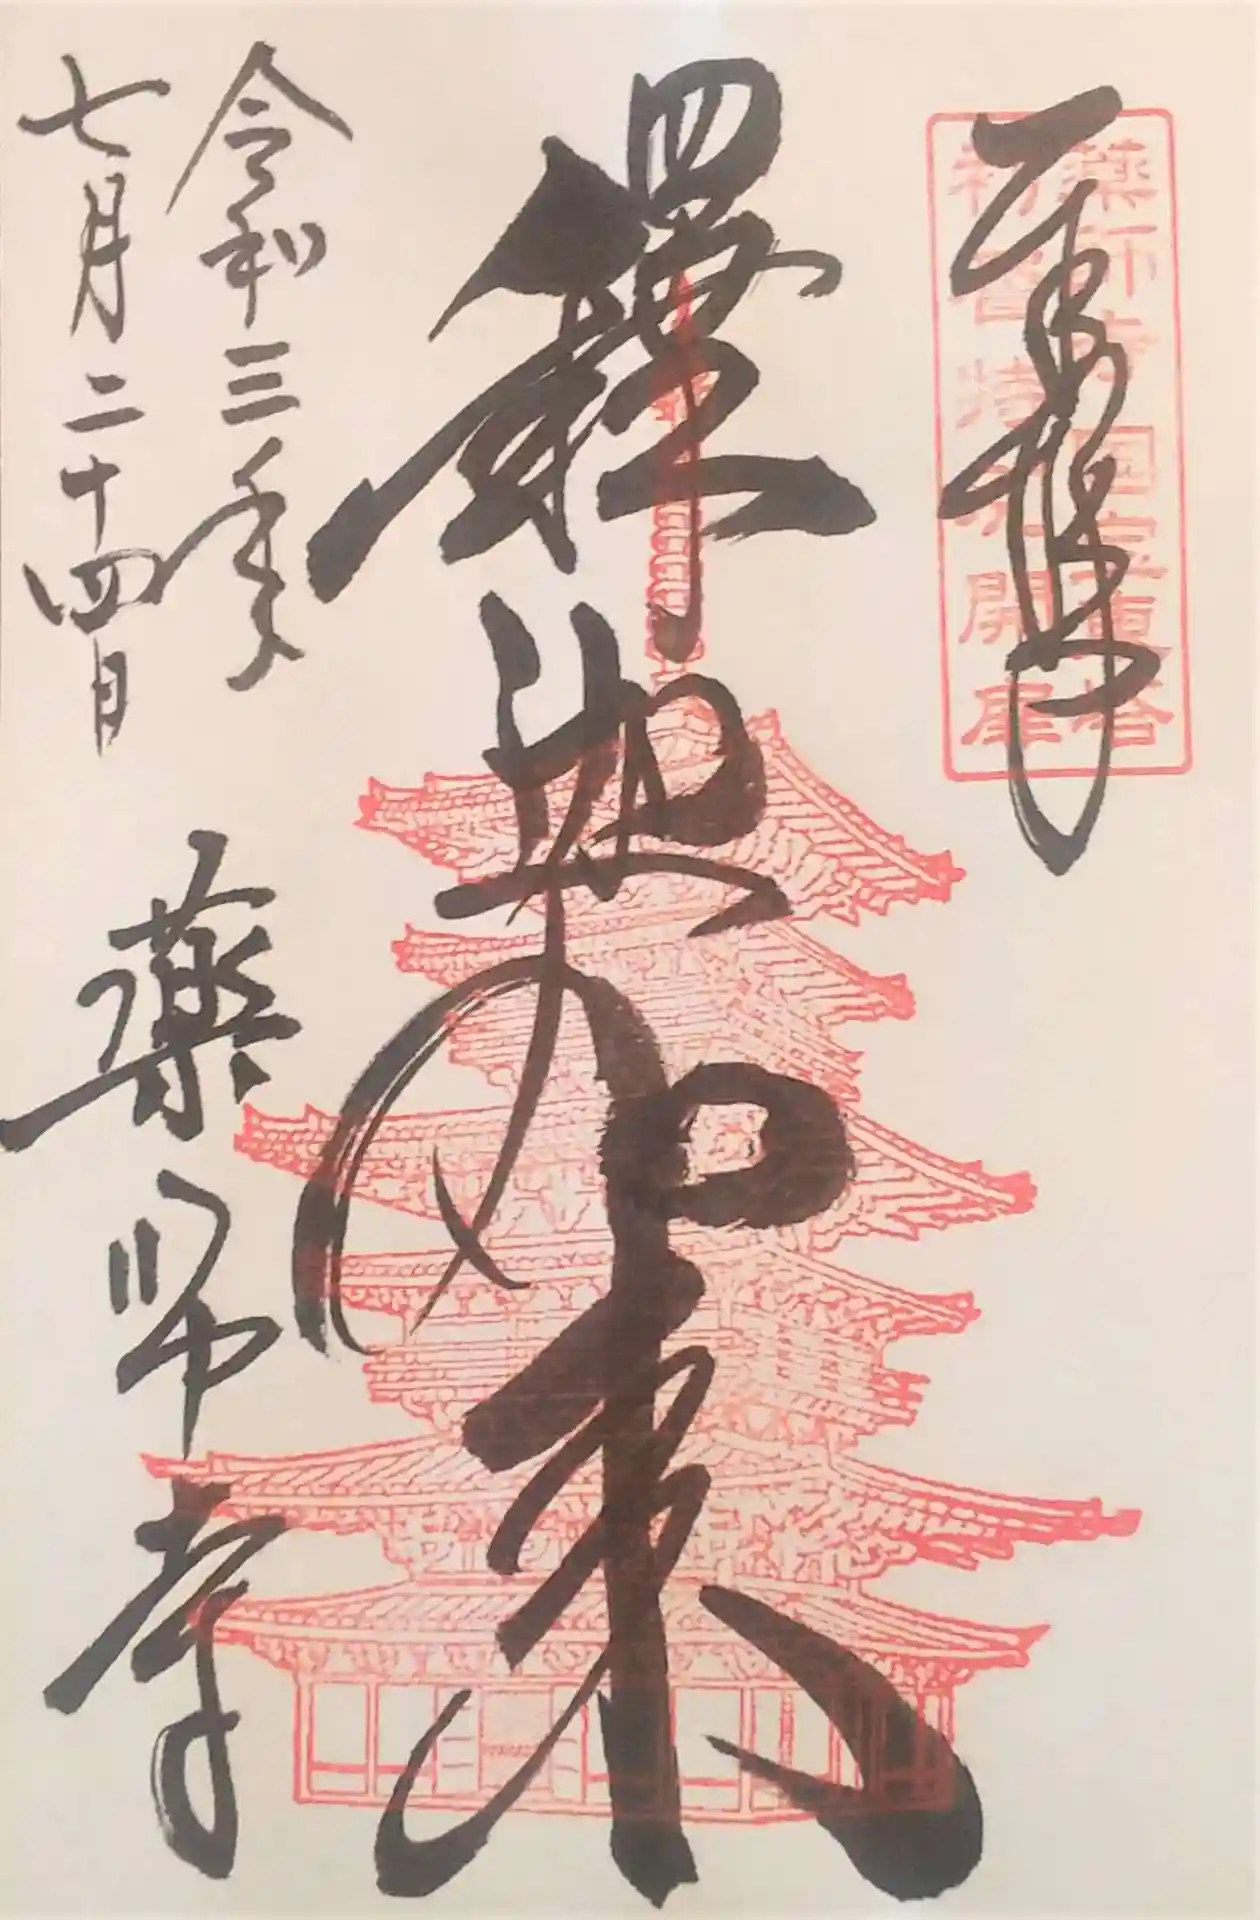 薬師寺国宝東塔
初層特別開扉
釋迦如来
令和三年
七月二十四日
薬師寺